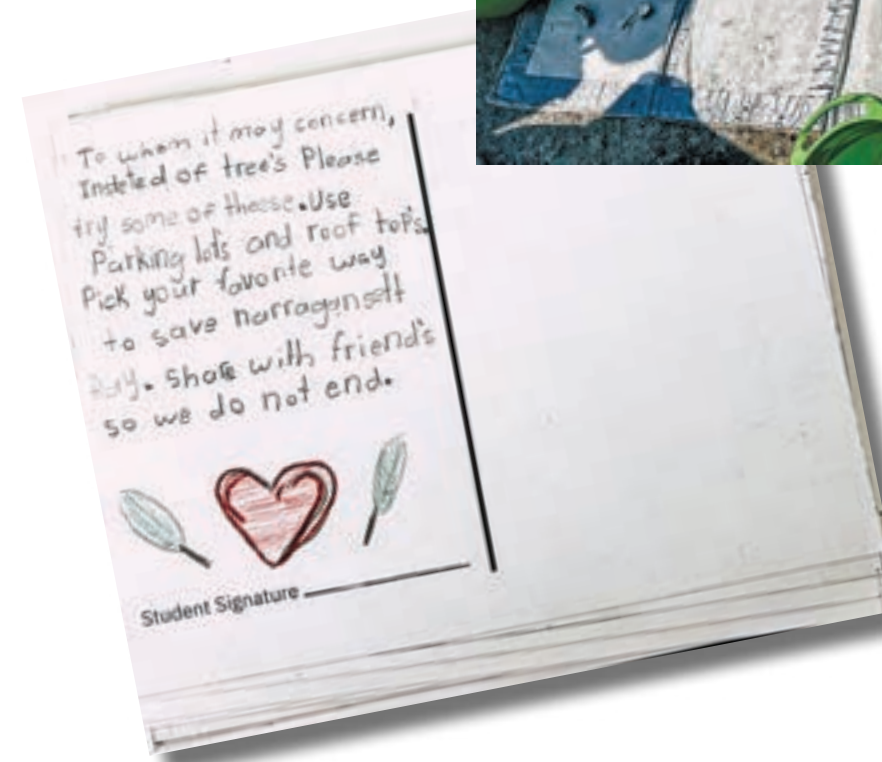 To whom it may concern,
Insteted of tree's Please
try some of theese. Use
Parking lots and roof top's.
Pick your favorite way
to save narragansett
Bay. Share with friend's
so we do not end.
Student Signature